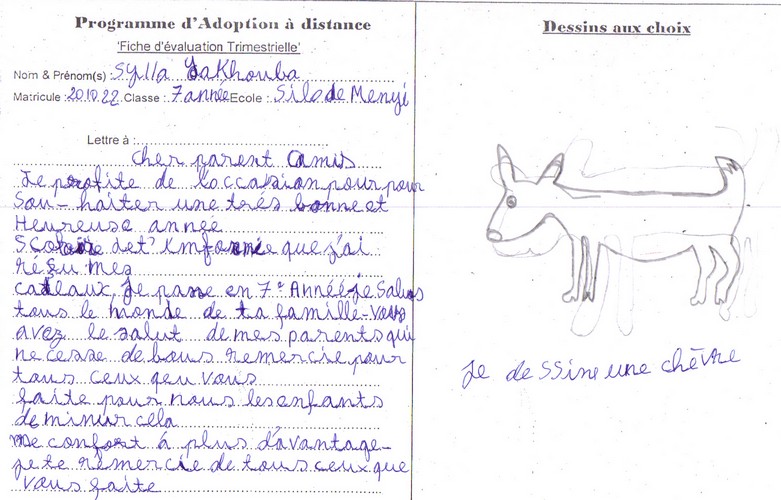 Programme d'Adoption à distance
'Fiche d'évaluation Trimestrielle'
Nom & Prénom(s) : Sylla Yakhouba
Matricule : 201022 Classe : 7 année Ecole : Silo de Menyi
Lettre à :
cher parent Camis
Je profite de l'occasion pour pour
Sou-haiter une trés bonne et
Heureuse année
Scolaire det' Kmformie que j'ai
réçu mes
cadeaux, Je passe en 7e Année. Je Salus
tous le monde de ta famille-Vous
avez le salut de mes parents qui
ne cesse de bous remercie pour
tous ceux qeu vous
faite pour nous les enfants
de minur cela
me confort à plus d'avantage-
je te remercie de tous ceux que
vous faite
Dessins aux choix
Je de ssine une chèvre